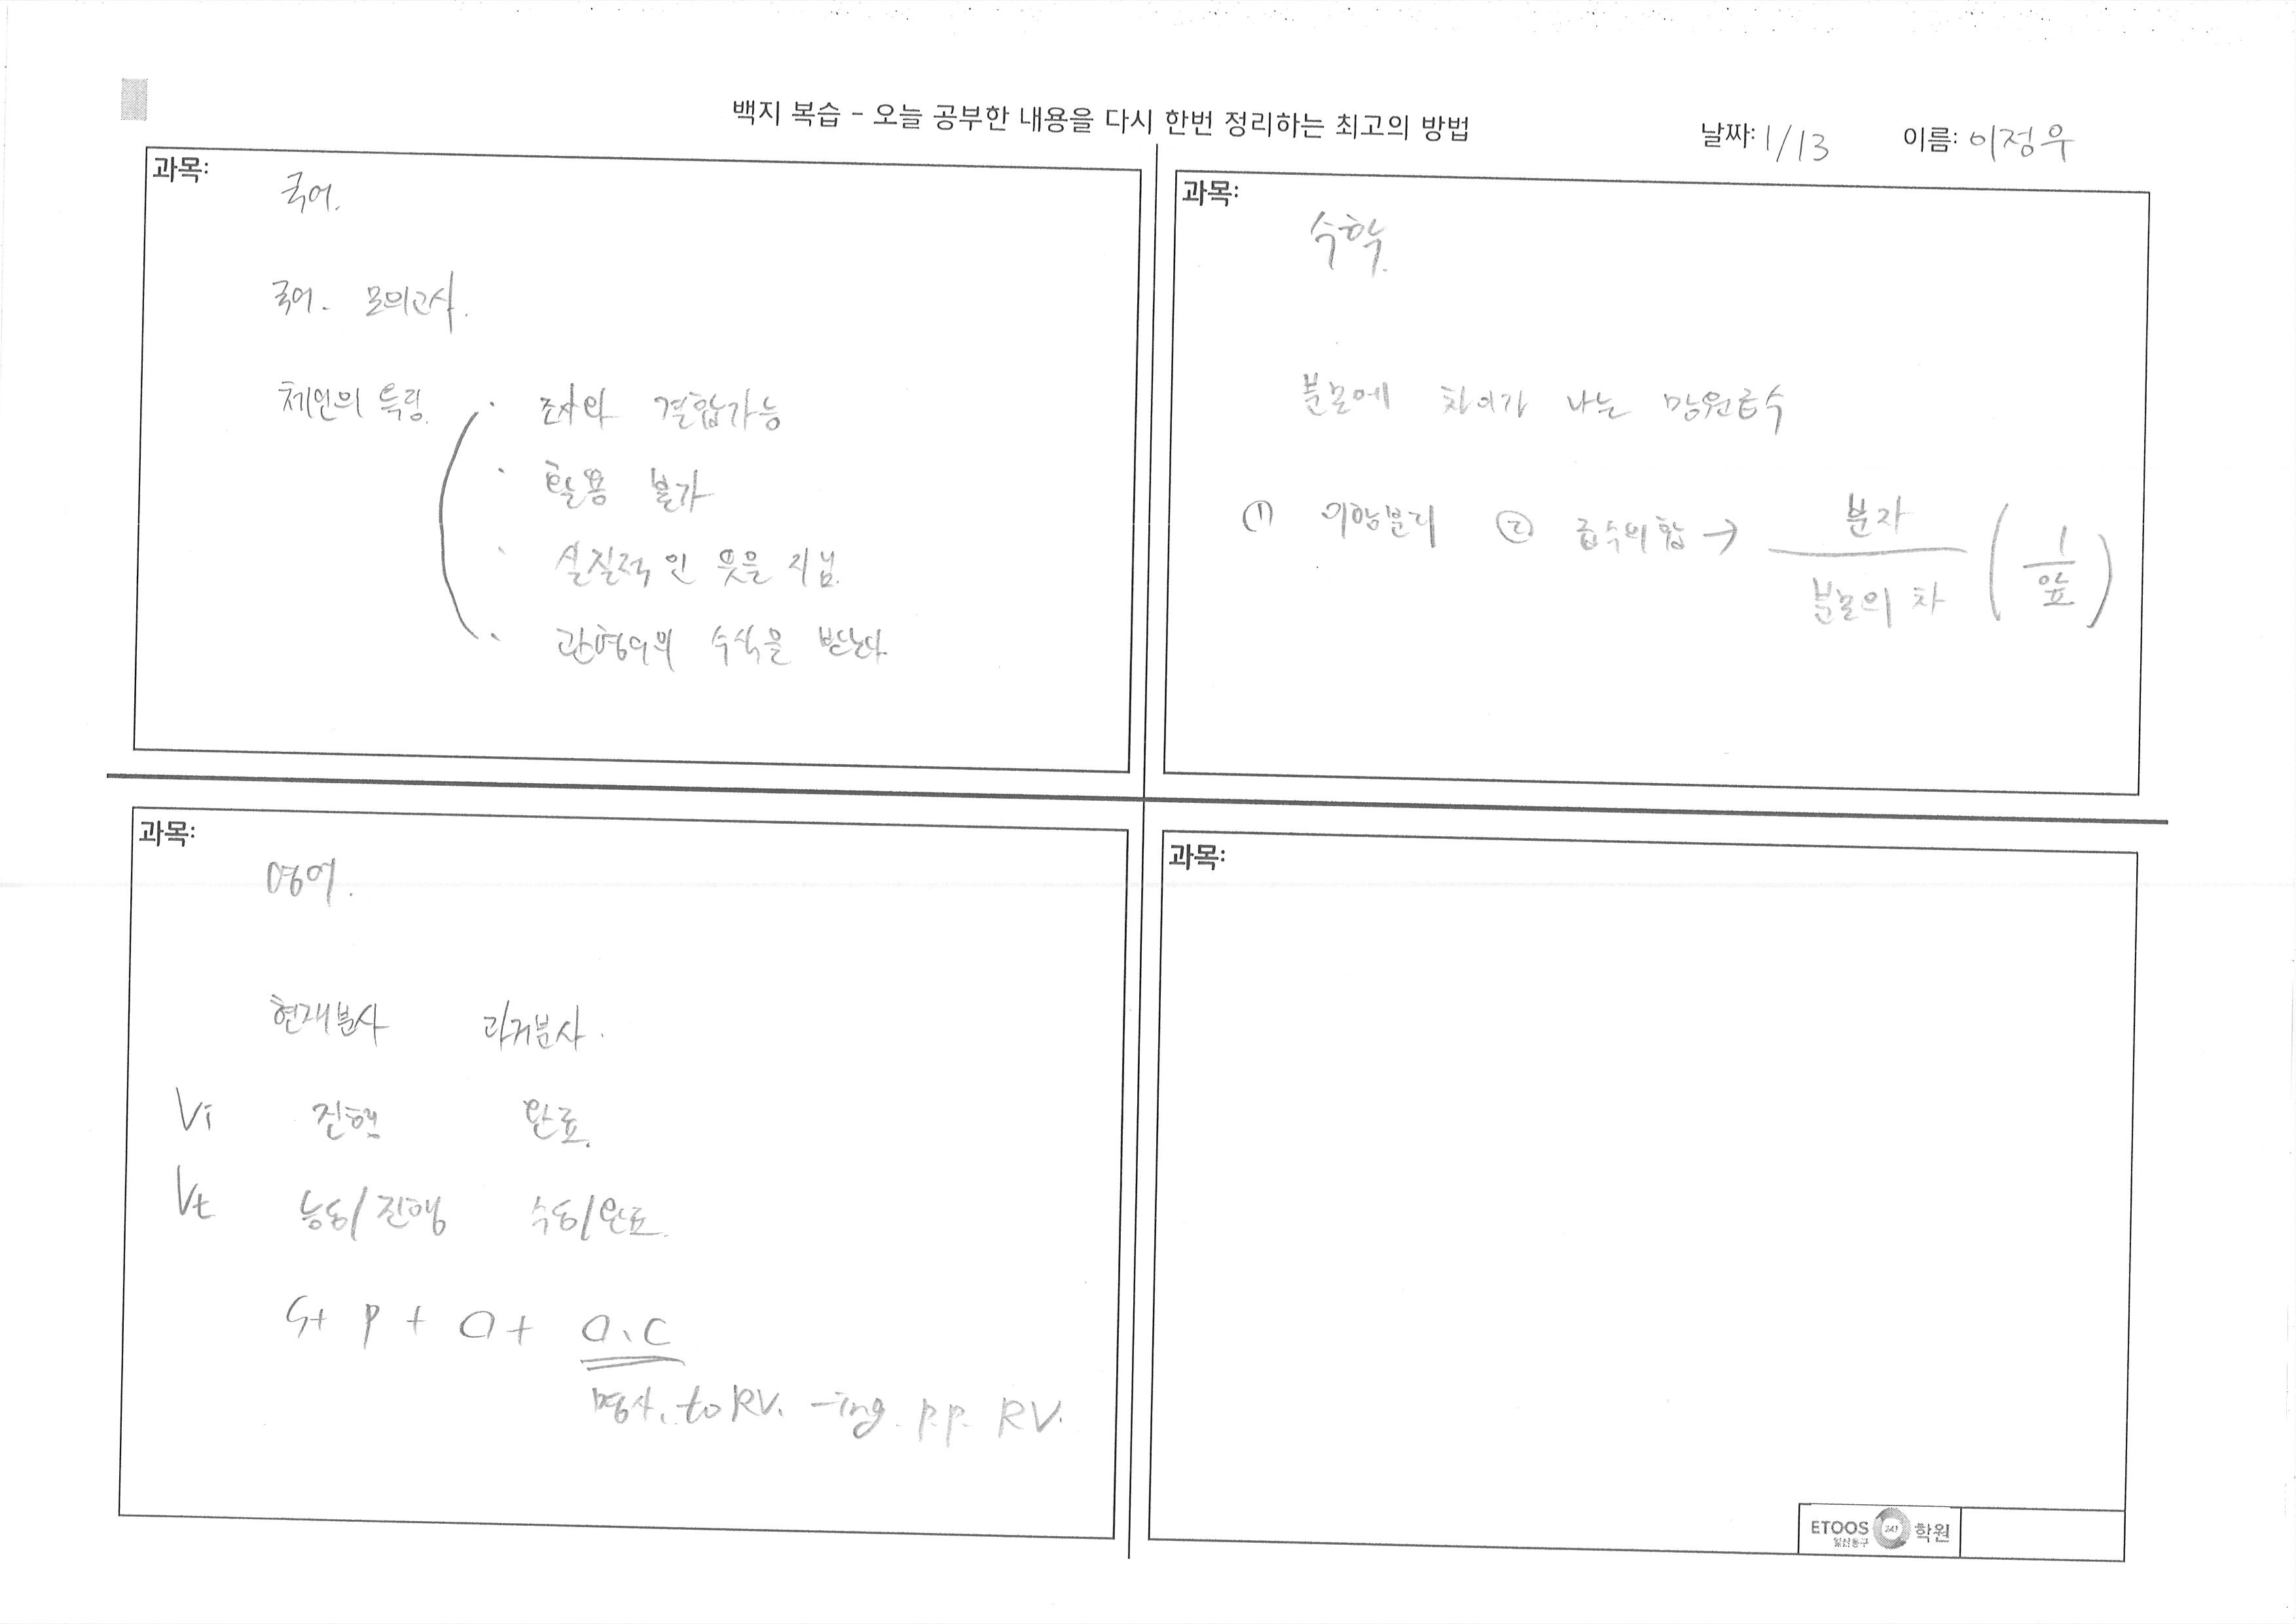 백지 복습 - 오늘 공부한 내용을 다시 한번 정리하는 최고의 방법
날짜: 1/13 이름: 이정우
과목: 국어.
국어. 모의고사.
체언의 특징.
· 조사와 결합가능
· 활용 불가
· 실질적인 뜻을 지님.
· 관형어의 수식을 받는다
과목: 수학.
분모에 차이가 나는 망원급수
① 이항분리 ② 급수의 합 → 분자 / 분모의 차 ( 1 / 앞 )
과목: 영어.
현재분사 과거분사.
Vi 진행 완료.
Vt 능동/진행 수동/완료.
S + P + O + O.C
명사. to RV. -ing. p.p. RV.
과목:
ETOOS 247 학원
일산동구